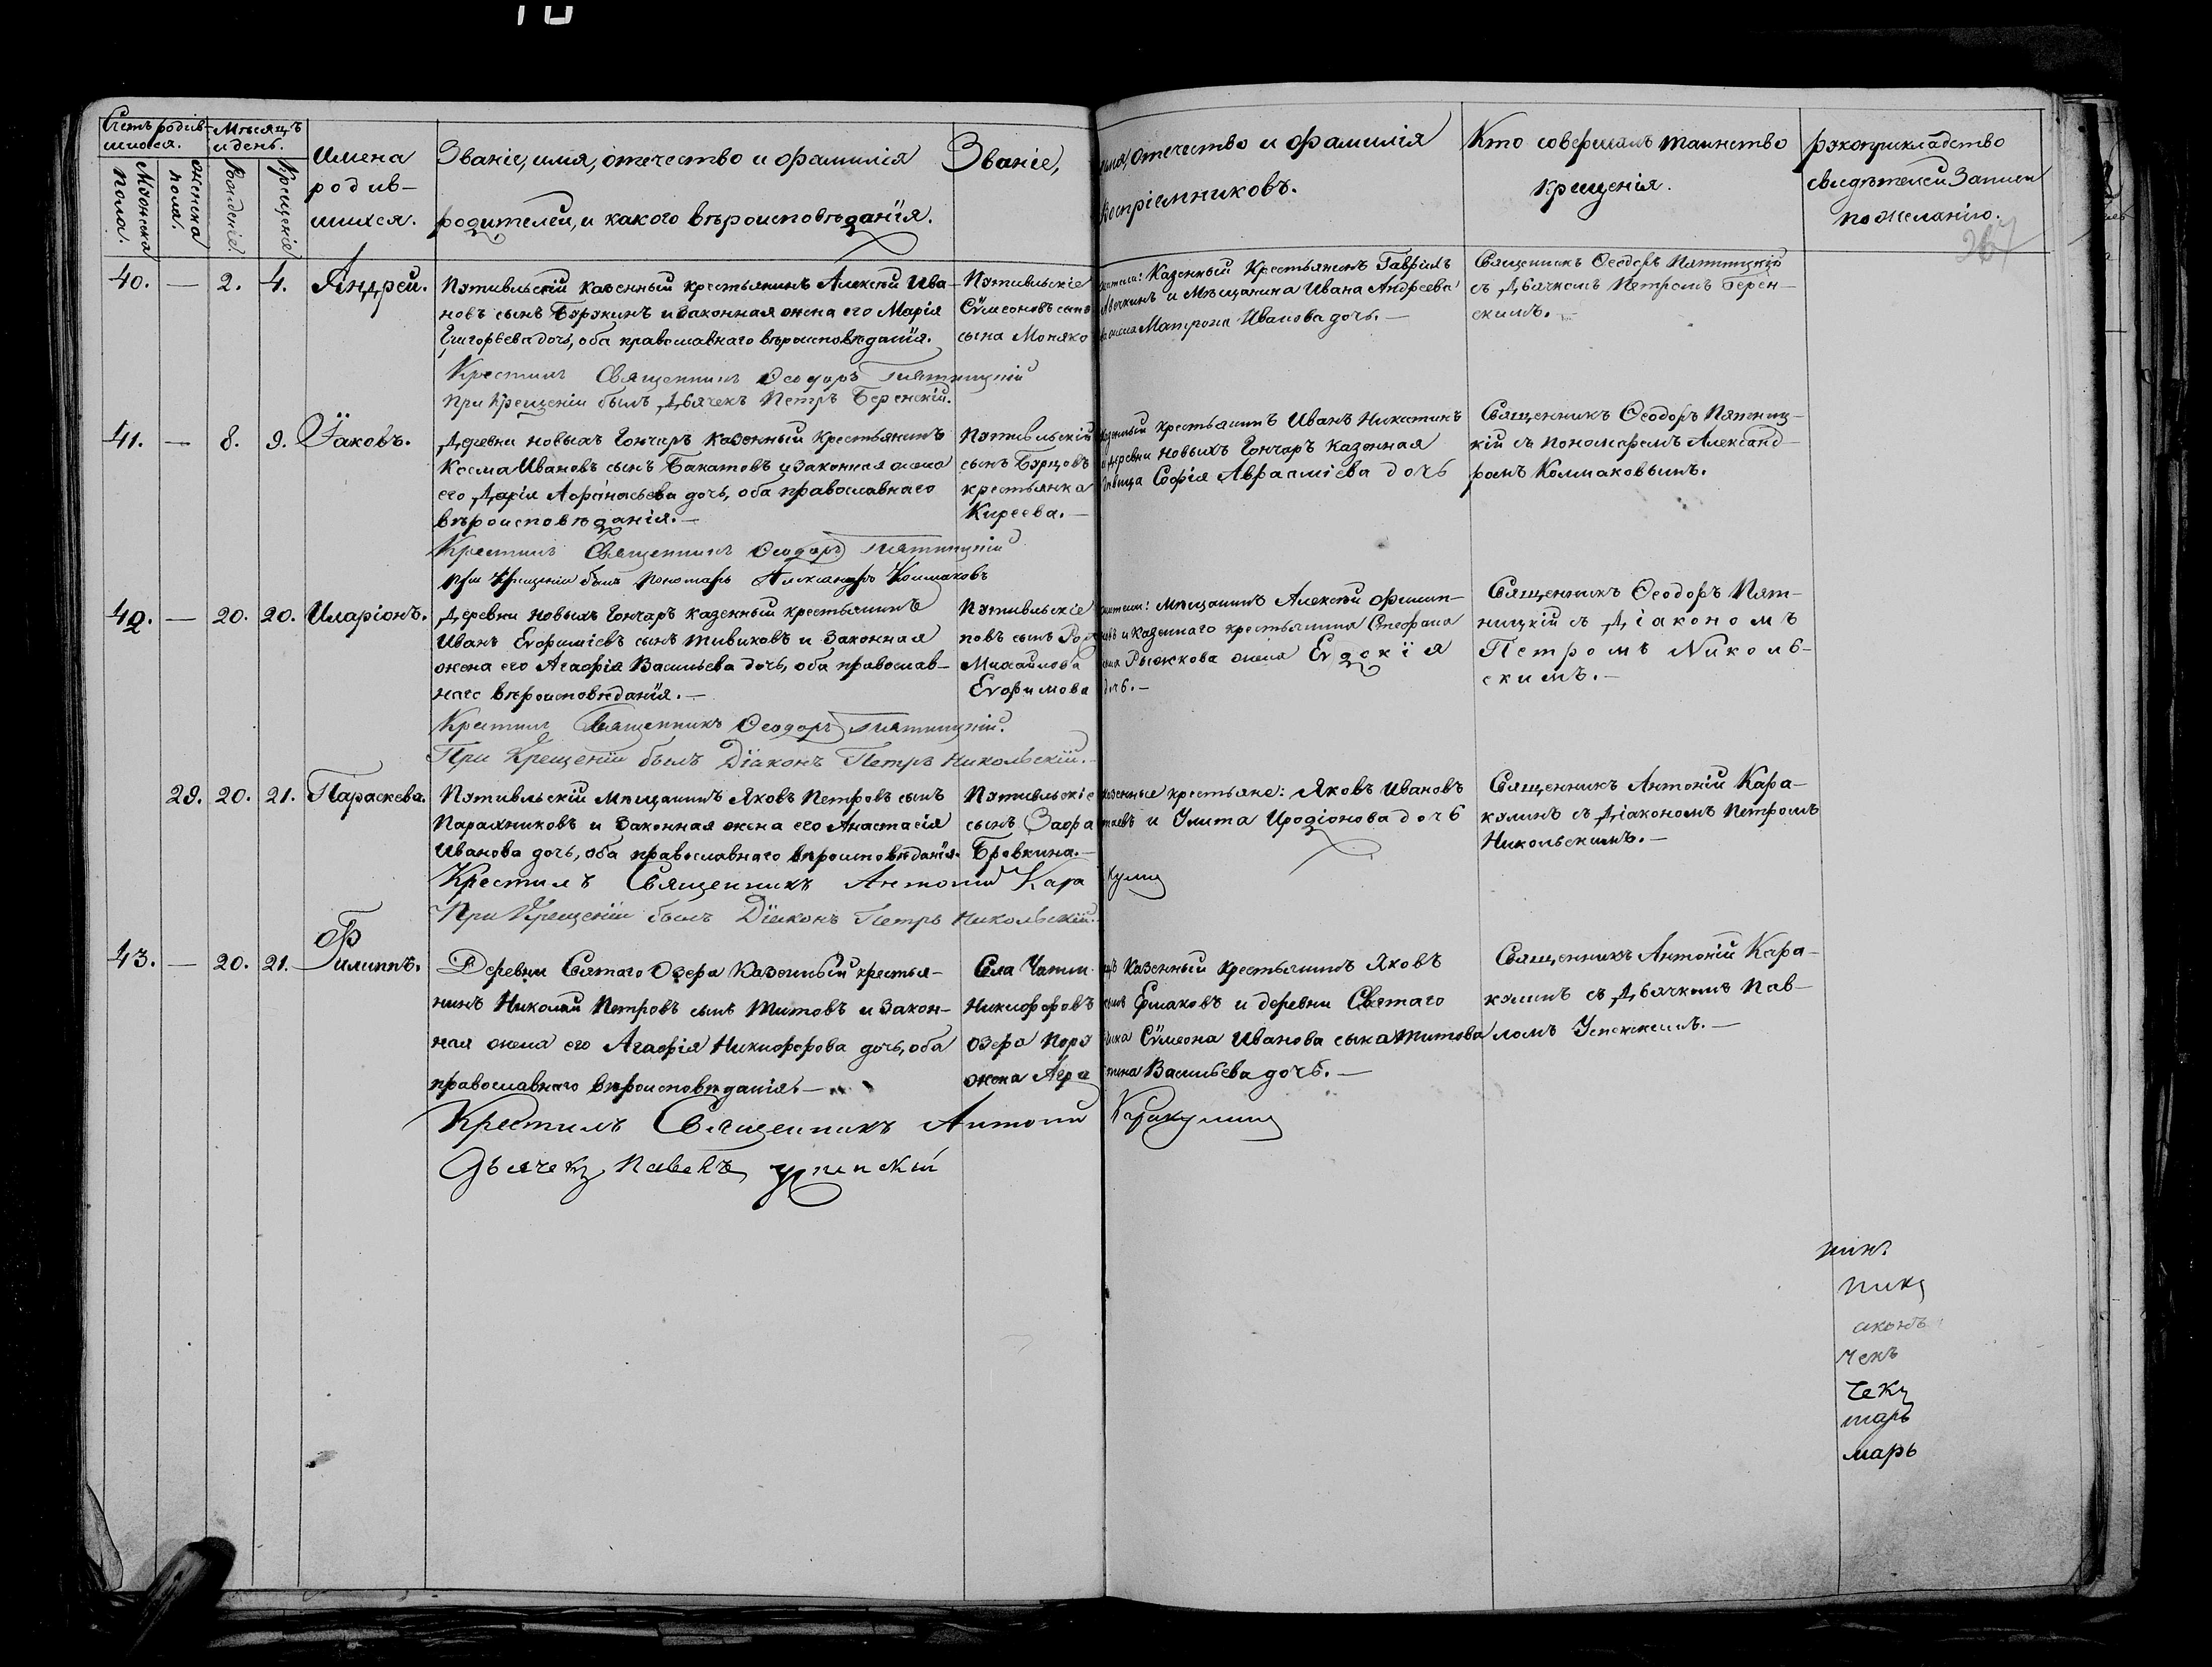 Счетъ родив- Мѣсяцъ
шихся. и день.
Мужеска пола. женска пола. Рожденіе. Крещеніе
Имена родив-
шихся.
Званіе, имя, отечество и фамилія
родителей, и какого вѣроисповѣданія.
Званіе, имя, отечество и фамилія
воспріемниковъ.
Кто совершалъ таинство
крещенія.
рукоприкладство
свидѣтелей записи
по желанію.
267
40. — 2. 4. Андрей.
Путивльскій казенный крестьянинъ Алексѣй Ива-
новъ сынъ и законная жена его Марія
Григорьева дочь, оба православнаго вѣроисповѣданія.
Путивльскіе
Сѵмеоновъ сынъ
сына Моняко
Казенный Крестьянинъ Гавріилъ
и Мѣщанина Ивана Андреева
Матрона Иванова дочь. —
Священникъ Ѳеодоръ Пятницкій
съ Дьячкомъ Петромъ Берен-
скимъ. —
Крестилъ Священникъ Ѳеодоръ Пятницкій
При Крещеніи былъ Дьячекъ Петръ Беренскій.
41. — 8. 9. Іаковъ.
Деревни новыхъ Гончаръ казенный крестьянинъ
Косма Ивановъ сынъ Бакатовъ и законная жена
его Дарія Аѳанасьева дочь, оба православнаго
вѣроисповѣданія. —
Путивльскій
сынъ Бурцовъ
крестьянка
Киреева. —
крестьянинъ Иванъ Никитинъ
деревни новыхъ Гончаръ казенная
Софія Авраамієва дочь
Священникъ Ѳеодоръ Пятниц-
кій съ пономаремъ Александ-
ромъ Колмаковымъ.
Крестилъ Священникъ Ѳеодоръ Пятницкій
при Крещеніи былъ Пономарь Александръ Колмаковъ
42. — 20. 20. Иларіонъ.
Деревни новыхъ Гончаръ казенный крестьянинъ
Иванъ Евфиміевъ сынъ Тивиковъ и законная
жена его Агаѳія Васильева дочь, оба православ-
наго вѣроисповѣданія. —
Путивльскіе
повъ сынъ
Михаилова
Евфимова
мѣщанинъ Алексѣй Филип-
и казеннаго крестьянина Стефана
Рыжкова жена Евдокія
дочь. —
Священникъ Ѳеодоръ Пят-
ницкій съ Діакономъ
Петромъ Николь-
скимъ. —
Крестилъ Священникъ Ѳеодоръ Пятницкій.
При Крещеніи былъ Діаконъ Петръ Никольскій.
29. 20. 21. Параскева.
Путивльскій Мѣщанинъ Яковъ Петровъ сынъ
и законная жена его Анастасія
Иванова дочь, оба православнаго вѣроисповѣданія.
Путивльскіе
сынъ
Бровкина. —
казенные крестьяне: Яковъ Ивановъ
и Улита Иродіонова дочь
Священникъ Антоній Кара-
кулинъ съ Діакономъ Петромъ
Никольскимъ. —
Крестилъ Священникъ Антоній Каракулин
При Крещеніи былъ Діаконъ Петръ Никольскій.
43. — 20. 21. Филиппъ.
Деревни Святаго Озера Казенный крестья-
нинъ Николай Петровъ сынъ Титовъ и закон-
ная жена его Агаѳія Никифорова дочь, оба
православнаго вѣроисповѣданія. —
Села
Никифоровъ
озера
жена
казенный крестьянинъ Яковъ
Ермаковъ и деревни Святаго
Сѵмеона Иванова сына Титова
Васильева дочь. —
Священникъ Антоній Кара-
кулинъ съ Дьячкомъ Пав-
ломъ Успенскимъ. —
Крестилъ Священникъ Антоній Каракулин
Дьячекъ Павелъ Успенскій
никъ
никъ
аконъ
чекъ
чекъ
марь
марь